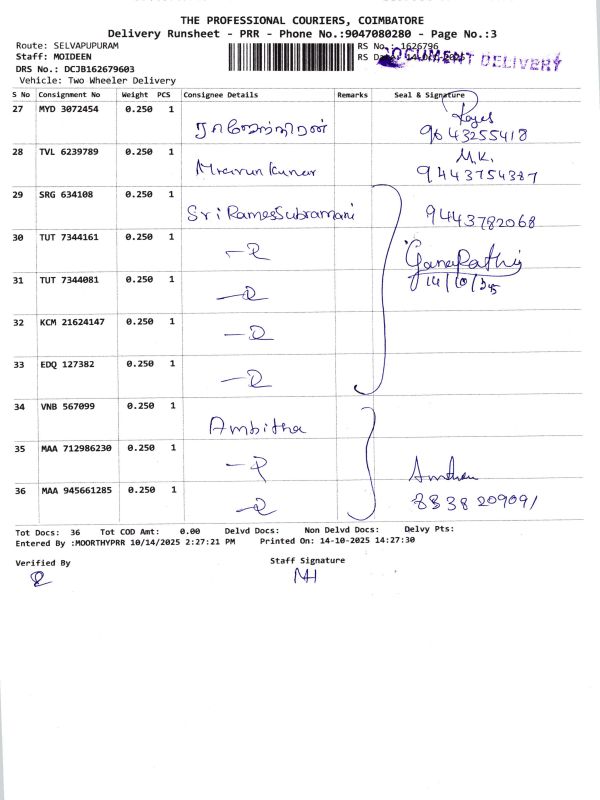 THE PROFESSIONAL COURIERS, COIMBATORE
Delivery Runsheet - PRR - Phone No.:9047080280 - Page No.:3
Route: SELVAPUPURAM
RS No.: 1626796
Staff: MOIDEEN
RS
DOCUMENT DELIVERY
DRS No.: DCJB162679603
Vehicle: Two Wheeler Delivery
S No Consignment No Weight PCS Consignee Details Remarks Seal & Signature
27 MYD 3072454 0.250 1
9643255418
28 TVL 6239789 0.250 1 M.K.
9443754387
29 SRG 634108 0.250 1 Sri RamesSubramani 9443782068
30 TUT 7344161 0.250 1 Ganapathy
14/10/25
31 TUT 7344081 0.250 1
32 KCM 21624147 0.250 1
33 EDQ 127382 0.250 1
34 VNB 567099 0.250 1 Ambitha
35 MAA 712986230 0.250 1
36 MAA 945661285 0.250 1 8838209091
Tot Docs: 36 Tot COD Amt: 0.00 Delvd Docs: Non Delvd Docs: Delvy Pts:
Entered By :MOORTHYPRR 10/14/2025 2:27:21 PM Printed On: 14-10-2025 14:27:30
Verified By Staff Signature